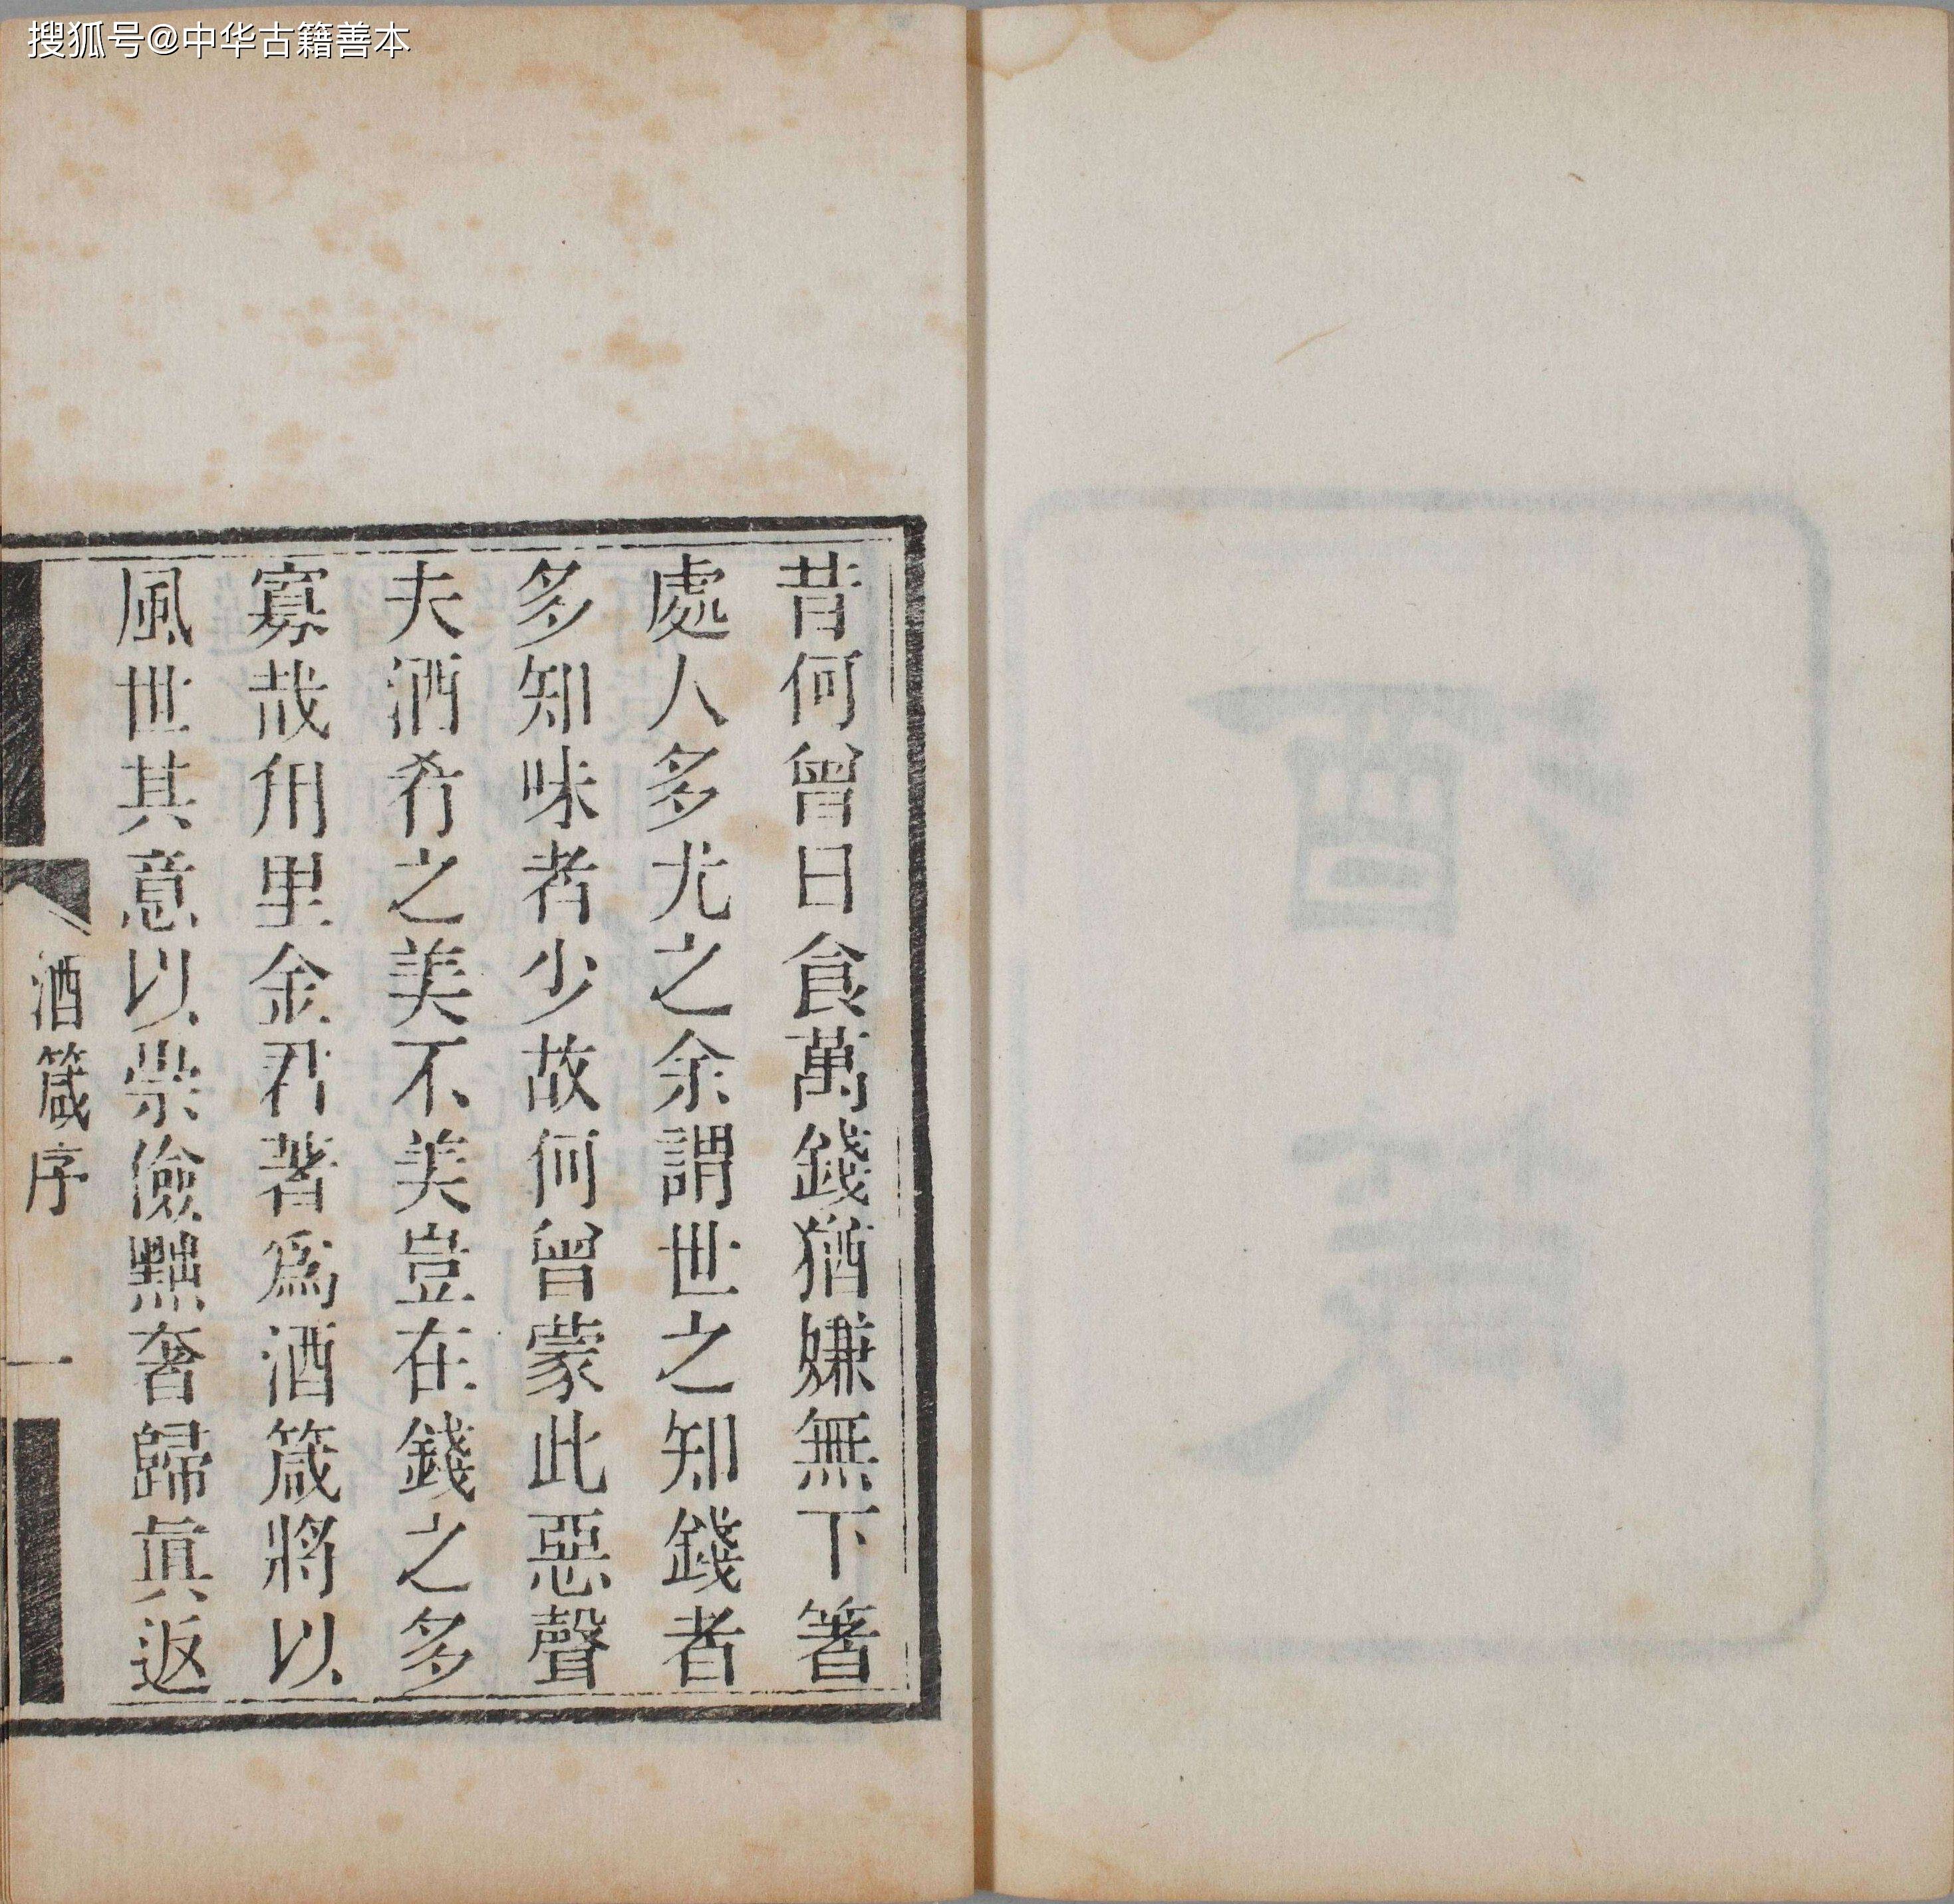 搜狐号@中华古籍善本
昔何曾日食萬錢猶嫌無下箸
處人多尤之余謂世之知錢者
多知味者少故何曾蒙此惡聲
夫酒肴之美不美豈在錢之多
寡哉甪里金君著爲酒箴將以
風世其意以崇儉黜奢歸眞返
酒箴序
一